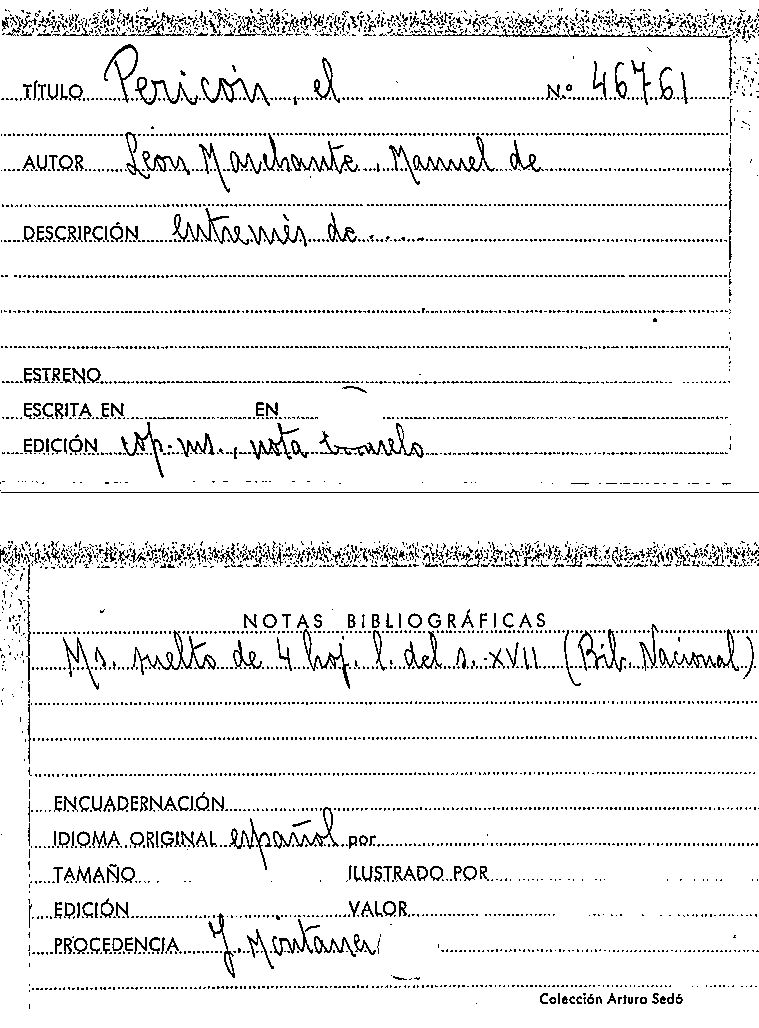 TÍTULO Pericón, el Nº 46761
AUTOR León Marchante, Manuel de
DESCRIPCIÓN entremés de....
ESTRENO
ESCRITA EN EN
EDICIÓN cop. ms., nota
NOTAS BIBLIOGRÁFICAS
Ms. suelto de 4 hoj. l. del s. XVII (Bib. Nacional)
ENCUADERNACIÓN
IDIOMA ORIGINAL español por
TAMAÑO ILUSTRADO POR
EDICIÓN VALOR
PROCEDENCIA J. Montaner
Colección Arturo Sedó